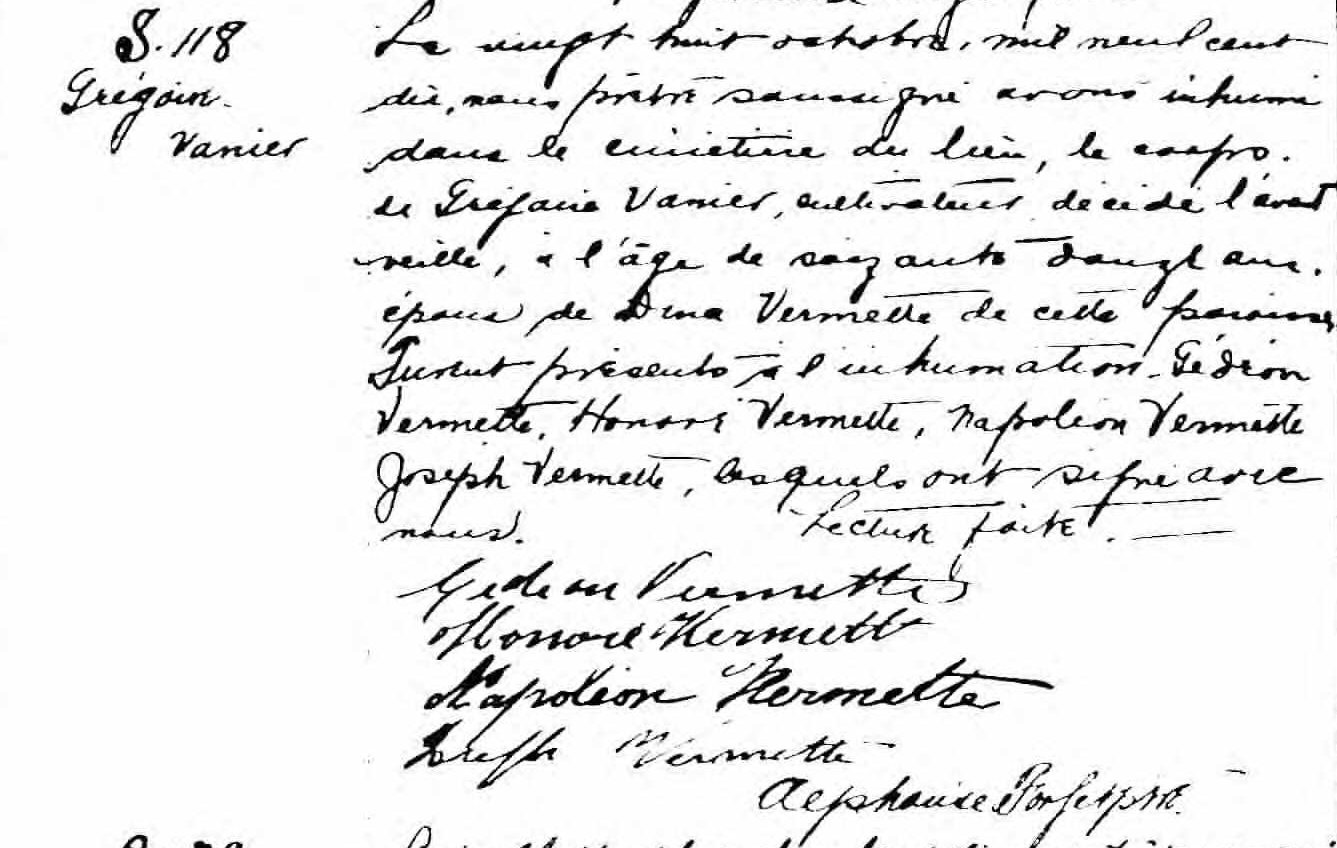 S. 118
Grégoire
Vanier
Le vingt huit octobre, mil neuf cent
dix, nous prêtre soussigné avons inhumé
dans le cimetière du lieu, le corps.
de Grégoire Vanier, cultivateur décédé l'avant
veille, à l'âge de soixante douze ans.
époux de Dina Vermette de cette paroisse,
Furent présents à l'inhumation Gédéon
Vermette, Honoré Vermette, Napoléon Vermette
Joseph Vermette, lesquels ont signé avec
nous. Lecture faite.
Gedeon Vermette
Honoré Vermette
Napoléon Vermette
Joseph Vermette
Alphonse ptre.